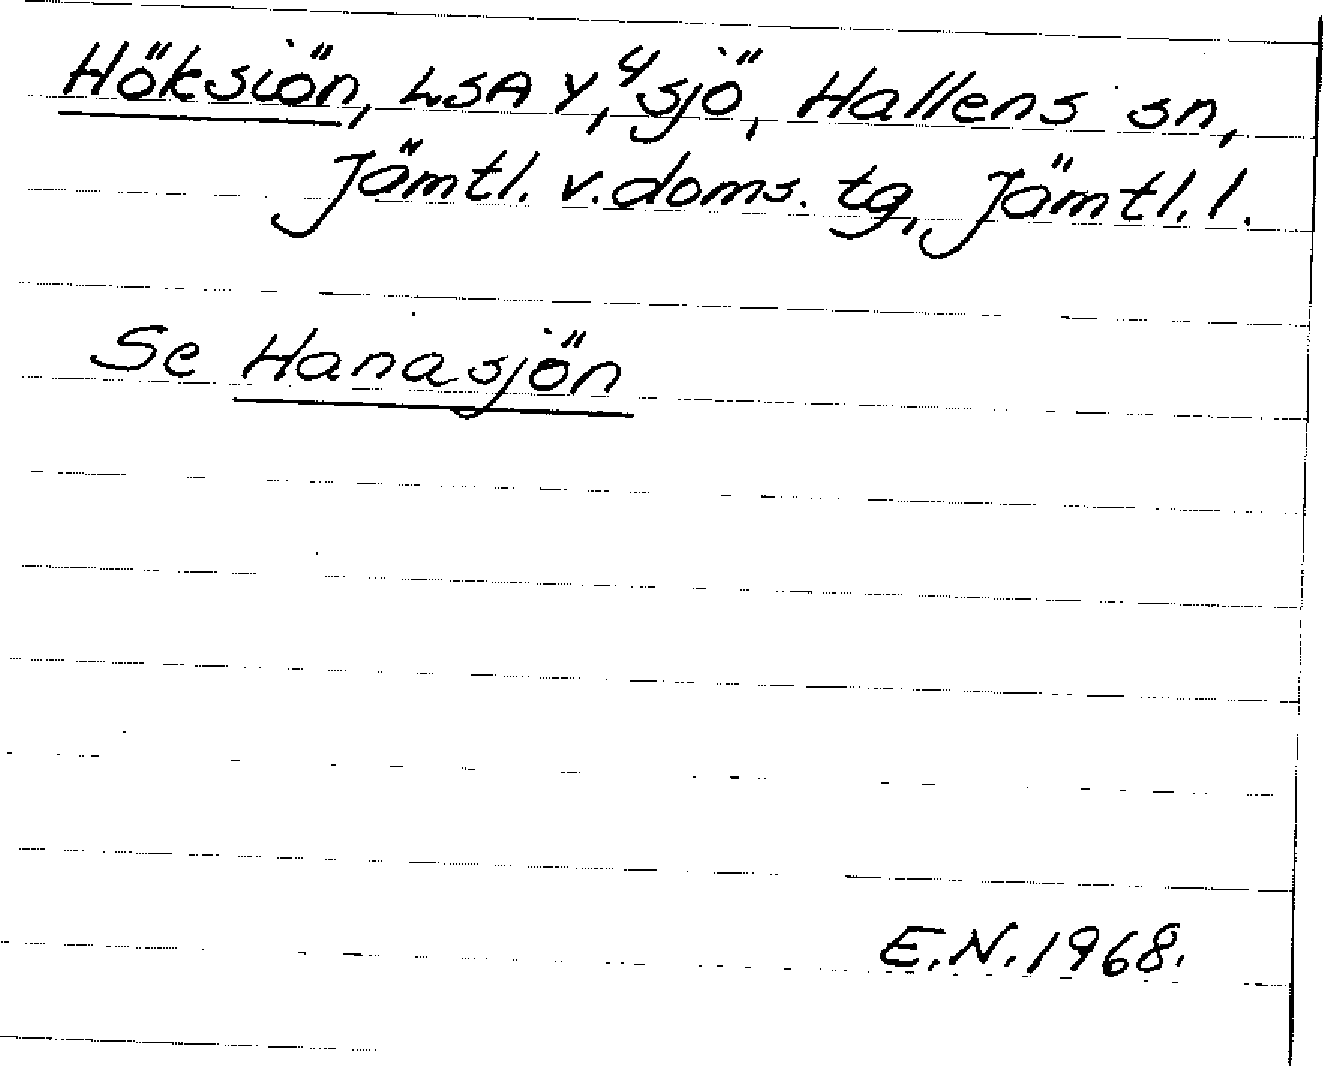 Höksiön, LSA Y,4 sjö, Hallens sn,
Jämtl. v. doms. tg, Jämtl. l.
Se Hanasjön
E.N. 1968.